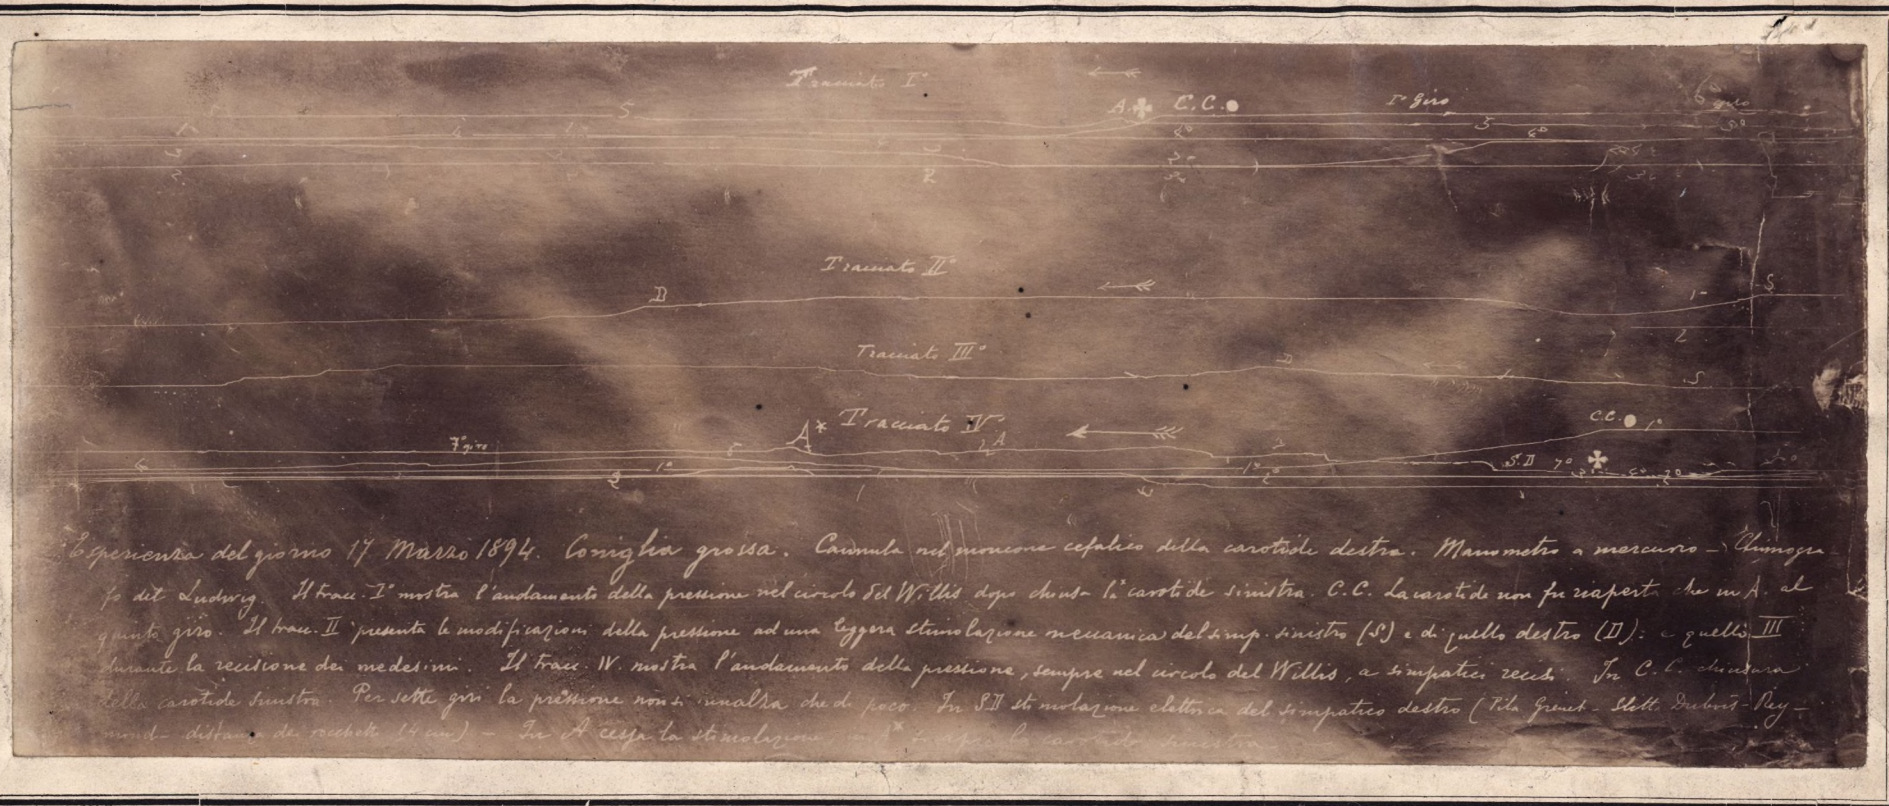 Tracciato I°
A. C.C. I° Giro
5
Tracciato II°
D
S
Tracciato III°
D
S
Tracciato IV°
A
C.C. 1°
7° giro
S.D 7°
Esperienza del giorno 17 Marzo 1894. Coniglia grossa. Cannula nel moncone cefalico della carotide destra. Manometro a mercurio - Chimogra-
fo del Ludwig. Il trac. I° mostra l'andamento della pressione nel circolo del Willis dopo chiusa la carotide sinistra. C.C. La carotide non fu riaperta che in A. al
quinto giro. Il trac. II presenta le modificazioni della pressione ad una leggera stimolazione meccanica del simp. sinistro (S) e di quello destro (D): e quello III
durante la recisione dei medesimi. Il trac. IV. mostra l'andamento della pressione, sempre nel circolo del Willis, a simpatici recisi. In C.C. chiusura
della carotide sinistra. Per sette giri la pressione non si innalza che di poco. In SD stimolazione elettrica del simpatico destro (Pila Grenet - Slitt. Dubois-Rey-
mond - distanza dei rocchetti 14 cm) - In A cessa la stimolazione in * la carotide sinistra